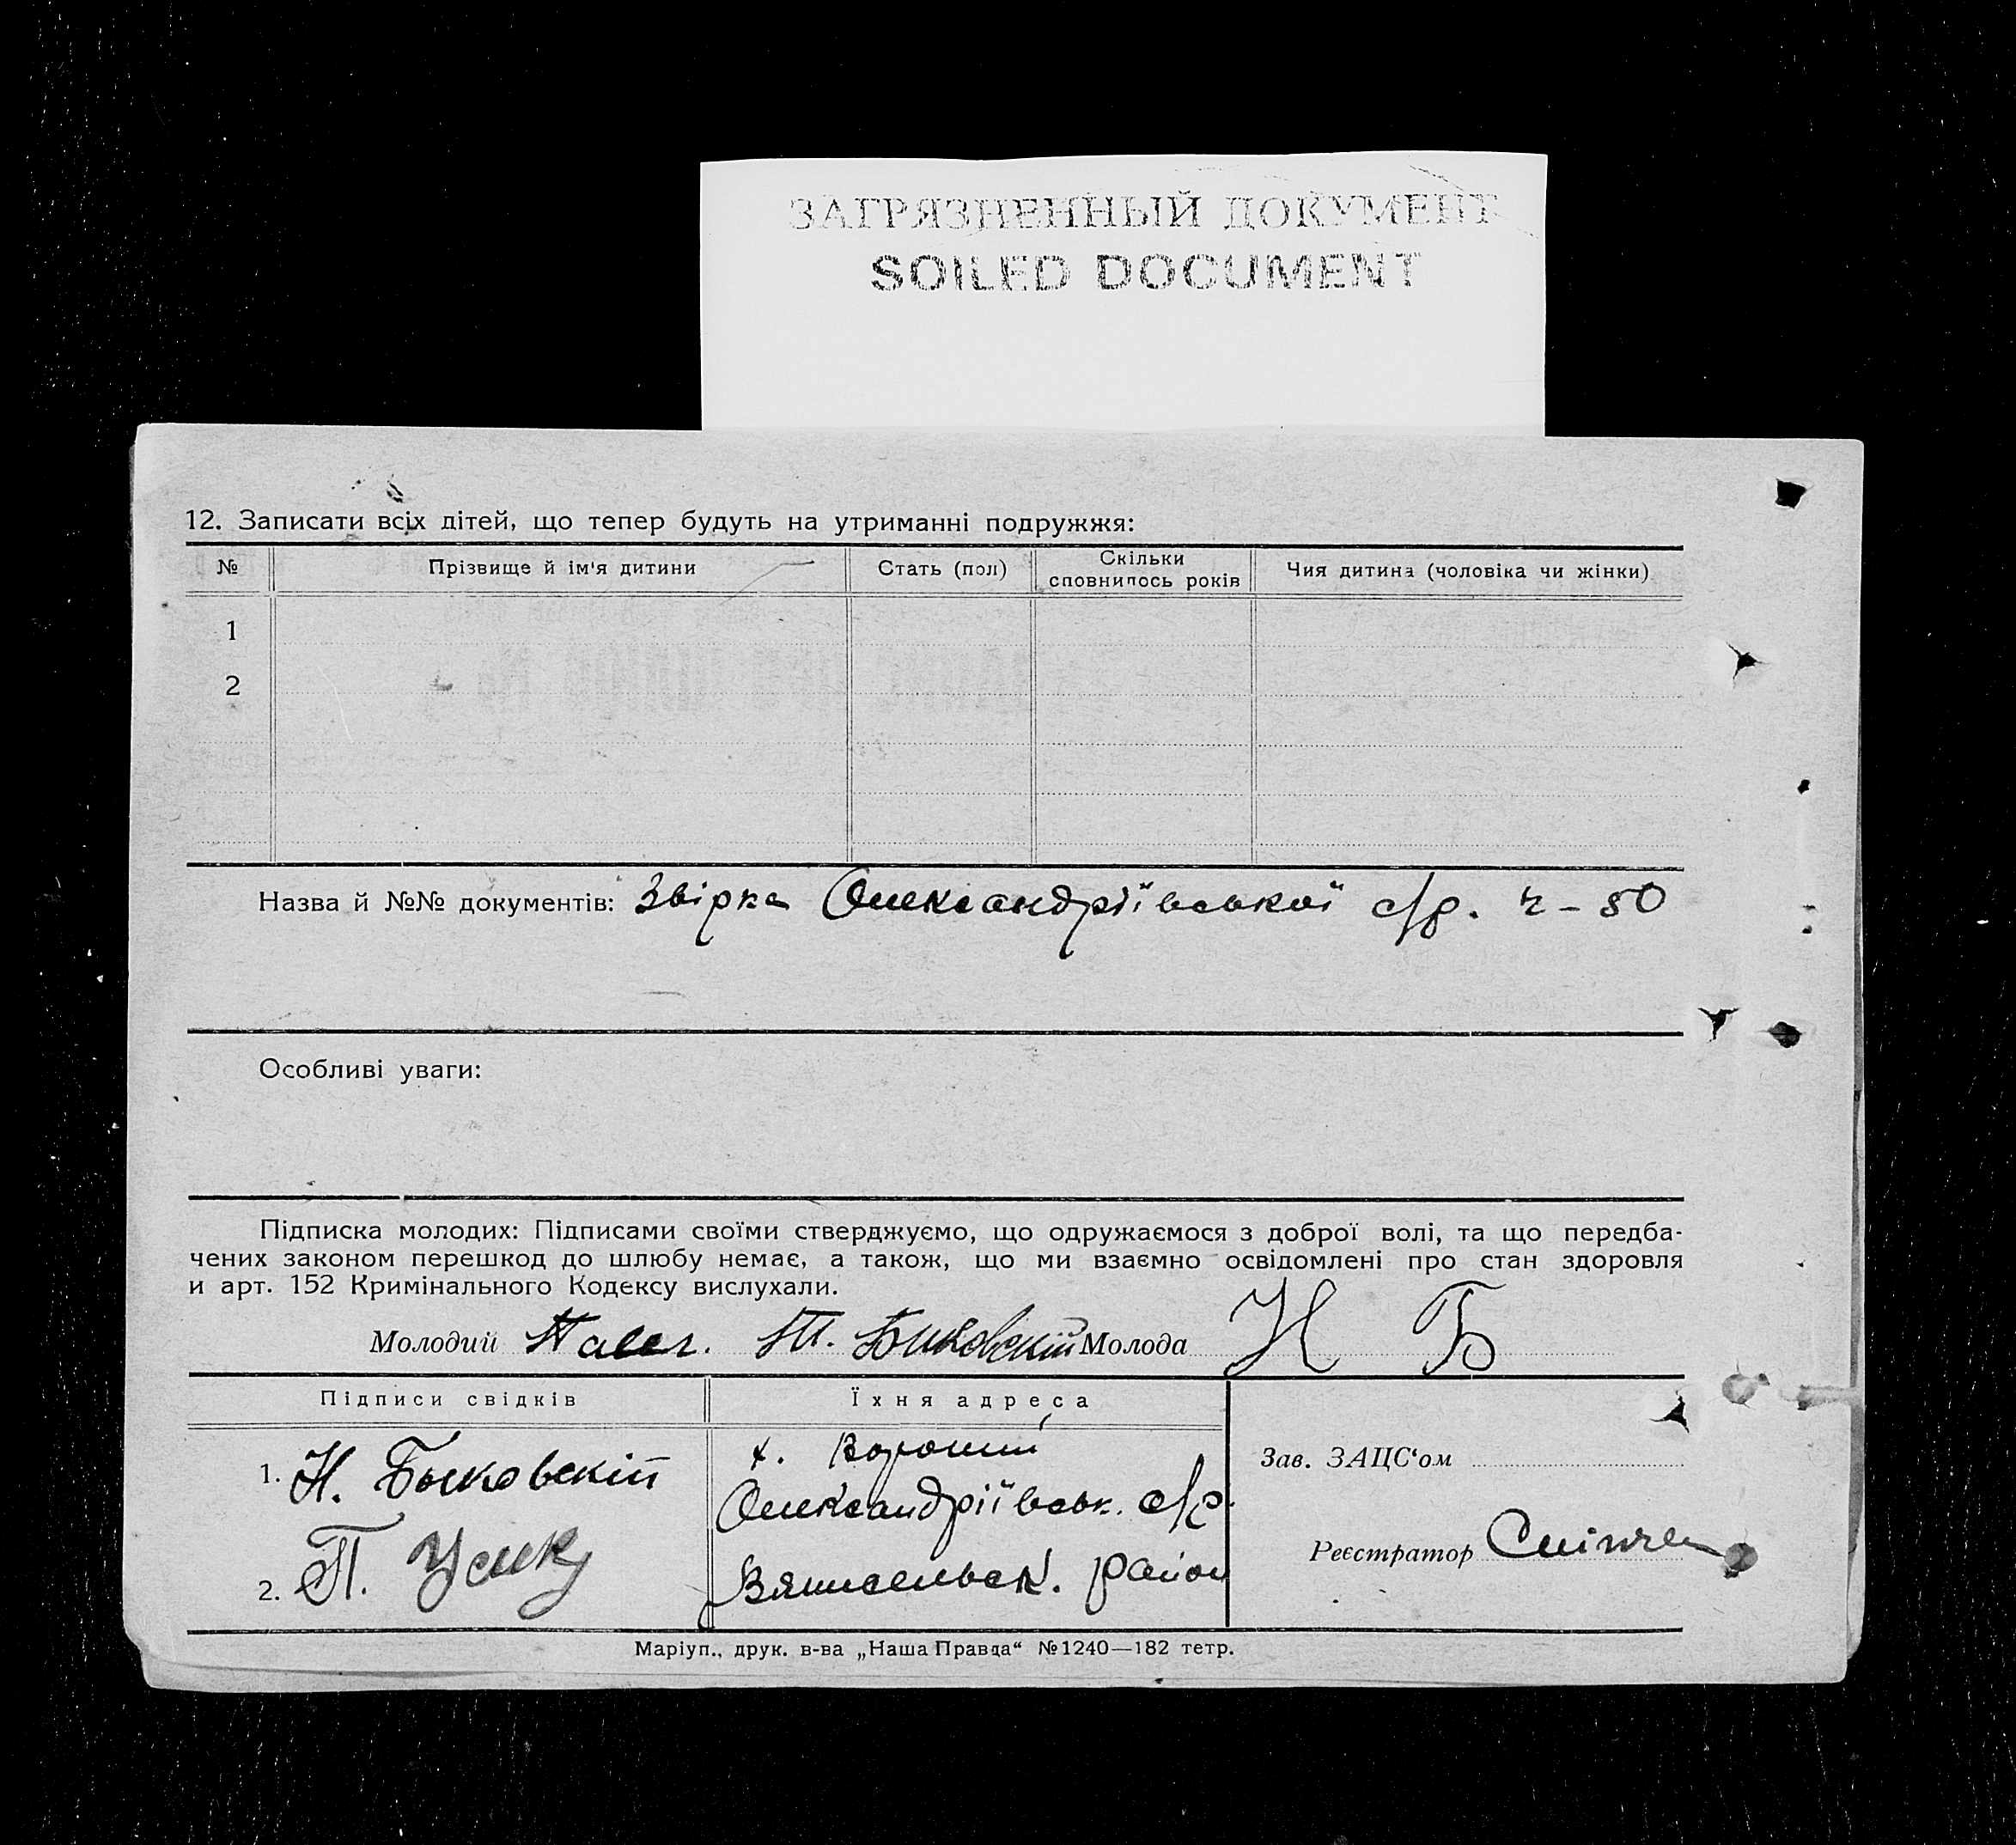 ЗАГРЯЗНЕННЫЙ ДОКУМЕНТ
SOILED DOCUMENT
12. Записати всіх дітей, що тепер будуть на утриманні подружжя:
№ Прізвище й ім'я дитини Стать (пол) Скільки сповнилось років Чия дитина (чоловіка чи жінки)
1
2
Назва й №№ документів: Звірка Олександріївської с/р. ч-50
Особливі уваги:
Підписка молодих: Підписами своїми стверджуємо, що одружаємося з доброї волі, та що передба-
чених законом перешкод до шлюбу немає, а також, що ми взаємно освідомлені про стан здоровля
и арт. 152 Кримінального Кодексу вислухали.
Молодий Биковскій Молода Н Б
Підписи свідків Їхня адреса
1. Н. Быковскій х.
Олександріївськ. с/р.
Зав. ЗАЦС'ом
2. П. Усик район
Реєстратор
Маріуп., друк. в-ва „Наша Правда“ №1240—182 тетр.